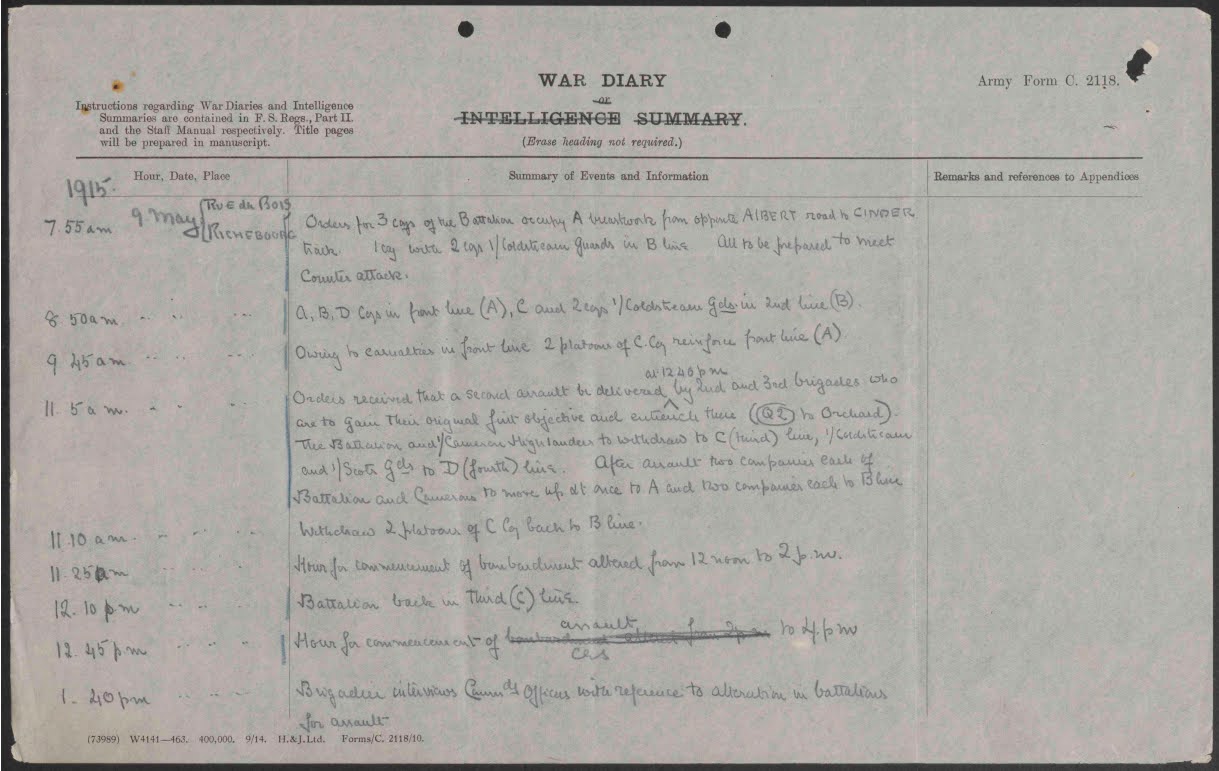 WAR DIARY
or
INTELLIGENCE SUMMARY.
(Erase heading not required.)
Army Form C. 2118.
Instructions regarding War Diaries and Intelligence
Summaries are contained in F. S. Regs., Part II.
and the Staff Manual respectively. Title pages
will be prepared in manuscript.
Hour, Date, Place
Summary of Events and Information
Remarks and references to Appendices
1915.
7.55am 9 May {RUE du BOIS
{RICHEBOURG
Orders for 3 coys of the Battalion occupy A breastwork from opposite ALBERT road to CINDER
track. 1 coy with 2 coys 1/Coldstream Guards in B line All to be prepared to meet
Counter attack.
8 50am " " " A, B, D Coys in front line (A), C and 2 coys 1/Coldstream Gds. in 2nd line (B).
9 45am " " " Owing to casualties in front line 2 platoons of C. Coy reinforce front line (A).
at 12 40 pm
11. 5 a m. " " " Orders received that a second assault be delivered by 2nd and 3rd brigades who
are to gain their original first objective and entrench there ((Q2) to Orchard).
The Battalion and 1/Cameron Highlanders to withdraw to C (third) line, 1/Coldstream
and 1/Scots Gds to D (fourth) line. After assault two companies each of
Battalion and Camerons to move up at once to A and two companies each to B line
11.10 am. " " " Withdraw 2 platoons of C Coy back to B line.
11.25 am " " " Hour for commencement of bombardment altered from 12 noon to 2 p.m.
12.10 pm " " " Battalion back in third (C) line.
assault
12.45 pm " " " Hour for commencement of bombardment altered from 2pm to 4 pm
1. 40pm " " " Brigadier interviews Commdg Officers with reference to alteration in battalions
for assault
(73989) W4141—463. 400,000. 9/14. H.&J.Ltd. Forms/C. 2118/10.